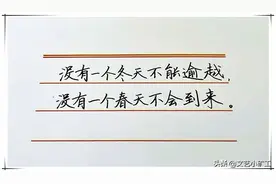 没有一个冬天不能逾越，
没有一个春天不会到来。
头条@文艺小矿工